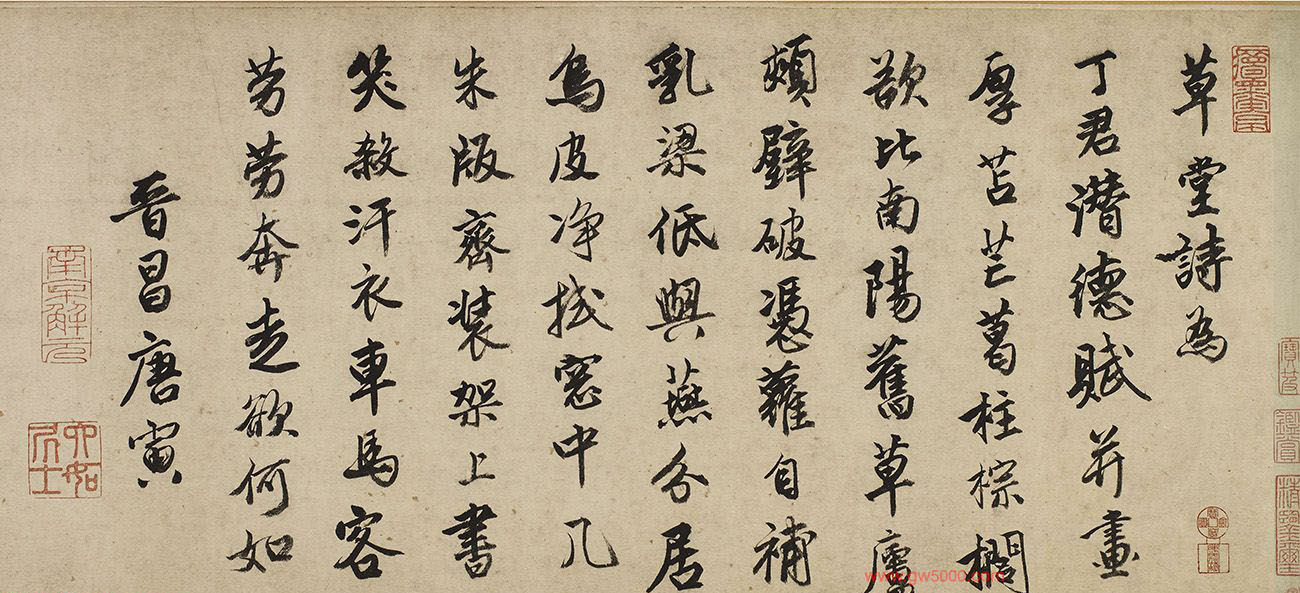 草堂詩為
丁君潛德賦并畫
厚苫芒葛柱棕櫚
欲比南陽舊草廬
頽壁破憑蘿自補
乳梁低與燕分居
烏皮净拭窓中几
朱版齊装架上書
笑殺汗衣車馬客
勞勞奔走欲何如
晋昌唐寅
南京解元
六如居士
www.gw5000.com